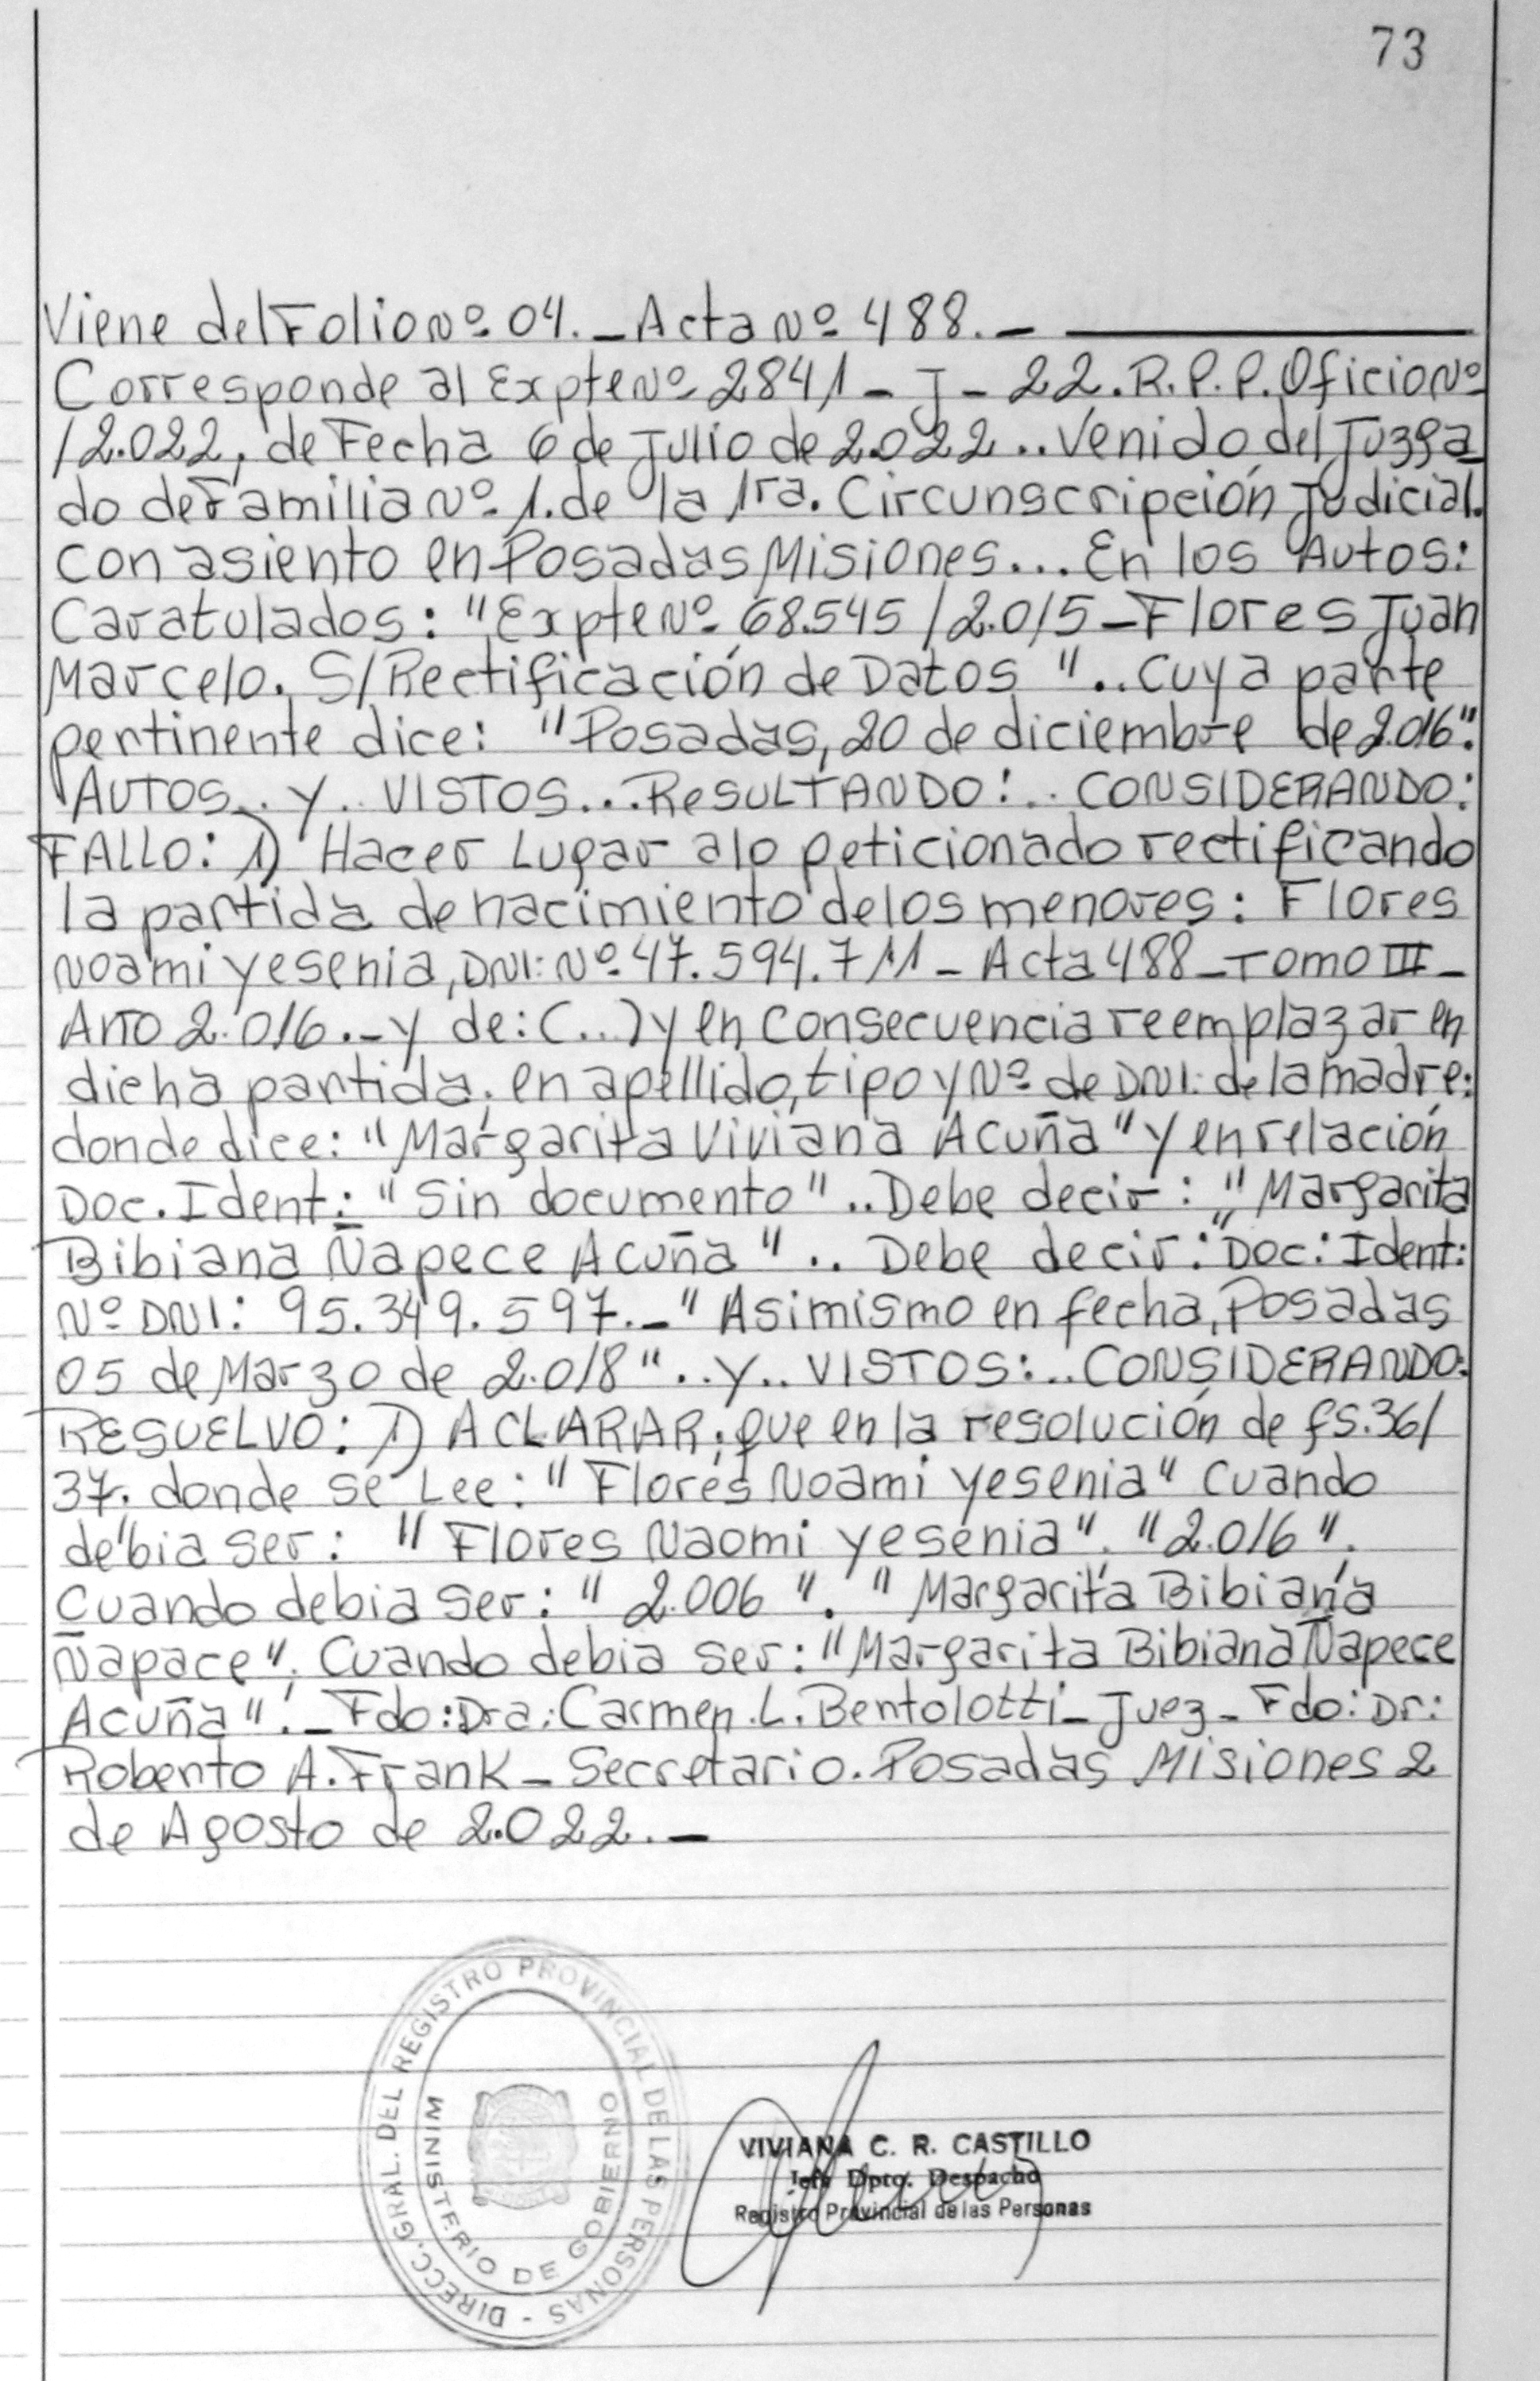 73
Viene del Folio Nº 04. _ Acta Nº 488. _
Corresponde al Expte Nº 2841 _ J _ 22. R.P.P. Oficio Nº
/2.022, de Fecha 6 de Julio de 2.022 .. Venido del Juzga
do de Familia Nº 1. de la 1ra. Circunscripción Judicial.
con asiento en Posadas Misiones... En los Autos:
Caratulados: "Expte Nº 68.545 /2.015 _ Flores Juan
Marcelo. S/Rectificación de Datos "..Cuya parte
pertinente dice: "Posadas, 20 de diciembre de 2.016".
AUTOS.. Y.. VISTOS...RESULTANDO:.. CONSIDERANDO:
FALLO: 1) Hacer Lugar a lo peticionado rectificando
la partida de nacimiento de los menores: Flores
Noami Yesenia, DNI: Nº 47.594.711 _ Acta 488 _ Tomo III _
Año 2.016._ y de: (...) y en consecuencia reemplazar en
dicha partida; en apellido, tipo y Nº de DNI: de la madre:
donde dice: "Margarita Viviana Acuña" y en relación
Doc. Ident: "Sin documento" .. Debe decir: "Margarita
Bibiana Ñapece Acuña" .. Debe decir: "Doc: Ident:
Nº DNI: 95.349.597._" Asimismo en fecha, Posadas
05 de Marzo de 2.018" ..Y.. VISTOS:.. CONSIDERANDO:
RESUELVO: 1) ACLARAR; que en la resolución de fs.36/
37. donde se Lee: "Flores Noami Yesenia" Cuando
debia ser: "Flores Naomi Yesenia". "2.016".
Cuando debia ser: "2.006". "Margarita Bibiana
Ñapace", Cuando debia ser: "Margarita Bibiana Ñapece
Acuña"._ Fdo: Dra: Carmen.L.Bentolotti _ Juez _ Fdo: Dr:
Roberto A.Frank _ Secretario. Posadas Misiones 2
de Agosto de 2.022._
DIRECC. GRAL. DEL REGISTRO PROVINCIAL DE LAS PERSONAS -
MINISTERIO DE GOBIERNO
VIVIANA C. R. CASTILLO
Jefe Dpto. Despacho
Registro Provincial de las Personas